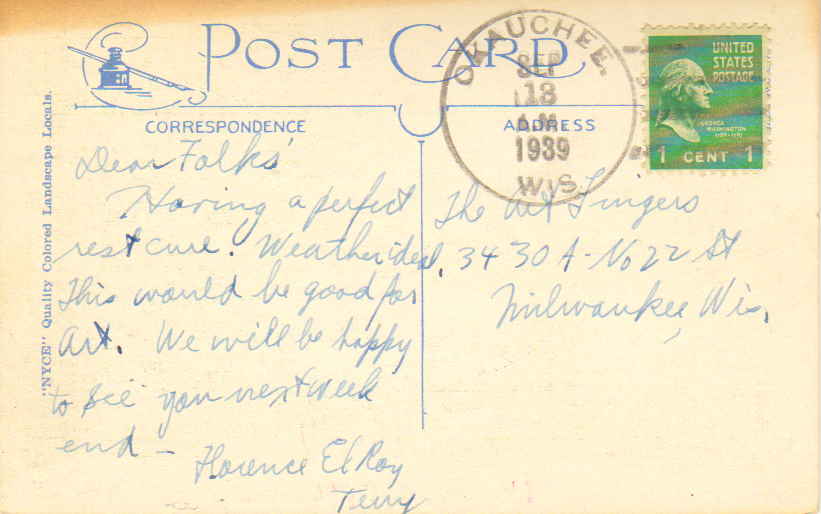 POST CARD
CORRESPONDENCE
ADDRESS
"NYCE" Quality Colored Landscape Locals.
OKAUCHEE.
SEP
13
A.M.
1939
WIS.
UNITED
STATES
POSTAGE
GEORGE
WASHINGTON
1 CENT 1
Dear Folks'
Having a perfect
rest cure. Weather ideal.
This would be good for
Art. We will be happy
to see you next week
end —
Florence El Roy
Terry
The Art
3430 A - No 22 St
Milwaukee, Wis.